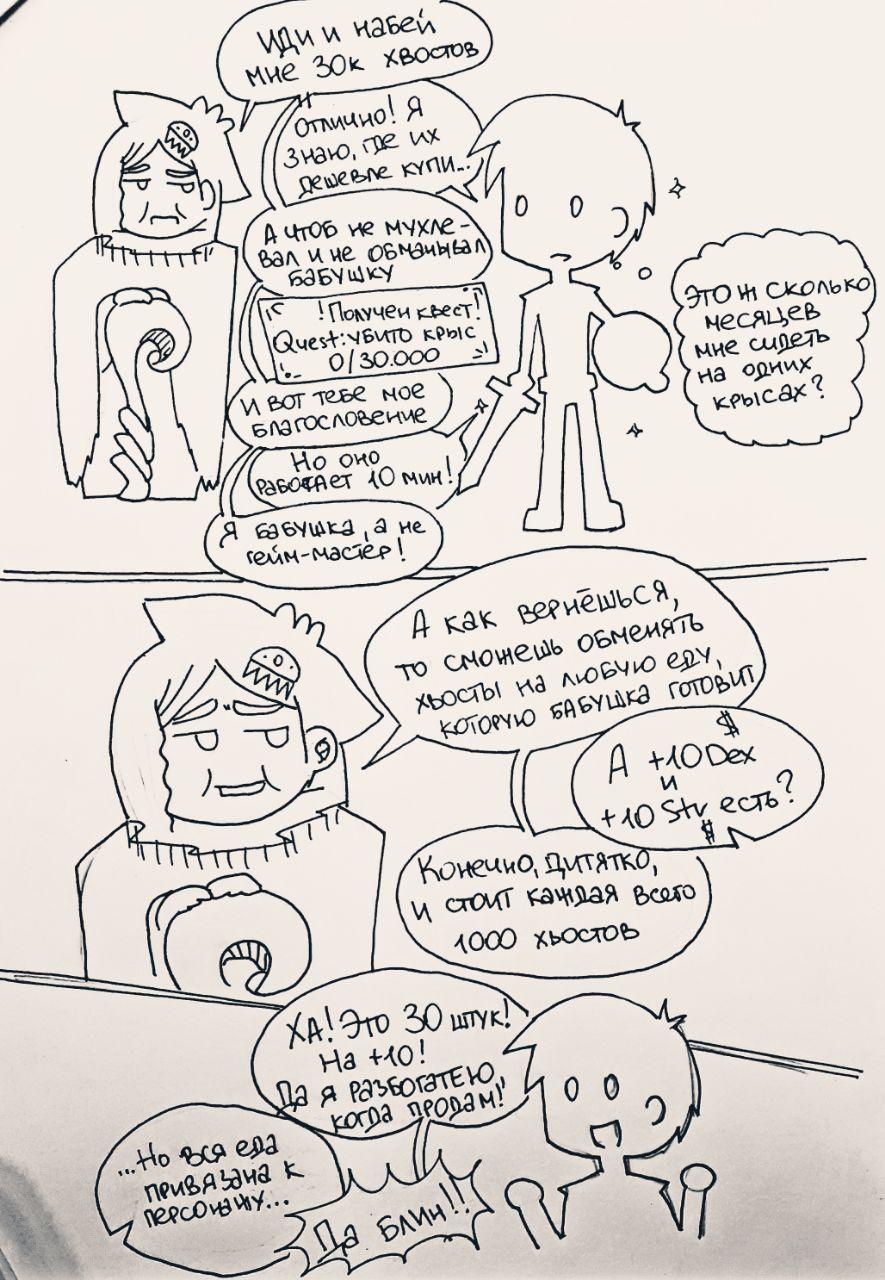 Иди и набей
мне 30к хвостов
Отлично! Я
знаю, где их
дешевле купи...
А чтоб не мухле-
вал и не обманывал
бабушку
!Получен квест!
Quest: убито крыс
0/30.000
И вот тебе мое
благословение
Но оно
работает 10 мин!
Я бабушка, а не
гейм-мастер!
Это ж сколько
месяцев
мне сидеть
на одних
крысах?
А как вернёшься,
то сможешь обменять
хвосты на любую еду,
которую бабушка готовит
$
А +10 Dex
и
+10 Str есть?
$
Конечно, дитятко,
и стоит каждая всего
1000 хвостов
ХА! Это 30 штук!
На +10!
Да я разбогатею,
когда продам!
...Но вся еда
привязана к
персонажу...
Да блин!!